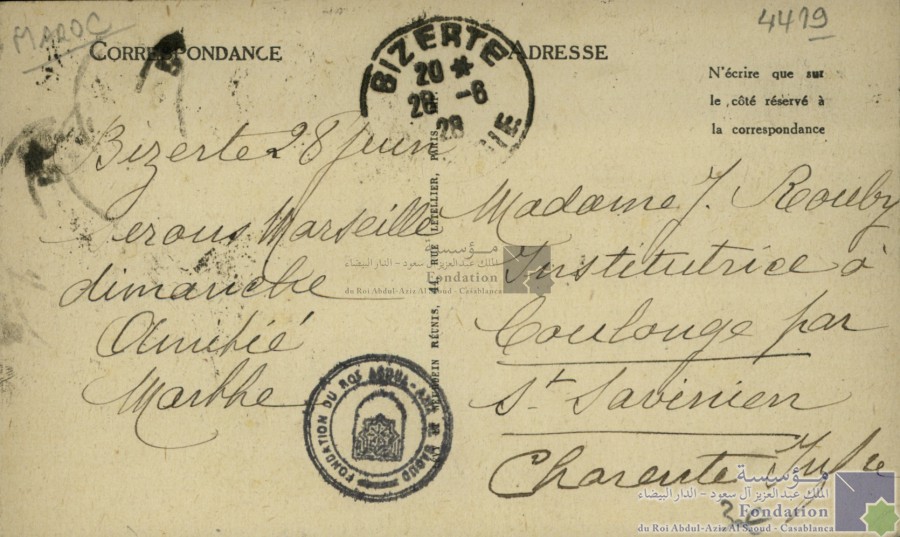 MAROC
4419
CORRESPONDANCE
ADRESSE
N'écrire que sur
le côté réservé à
la correspondance
BIZERTE
20 *
28 -6
28
Bizerte 28 Juin
erons Marseille
dimanche
Amitié
Marthe
RÉUNIS, 44, RUE LETELLIER, PARIS
Madame J. Rouby
Institutrice à
Coulonge par
St Savinien
Charente Infre
FONDATION DU ROI ABDUL-AZIZ AL SAOUD
مؤسسة
الملك عبد العزيز آل سعود - الدار البيضاء
Fondation
du Roi Abdul-Aziz Al Saoud - Casablanca
مؤسسة
الملك عبد العزيز آل سعود - الدار البيضاء
Fondation
du Roi Abdul-Aziz Al Saoud - Casablanca